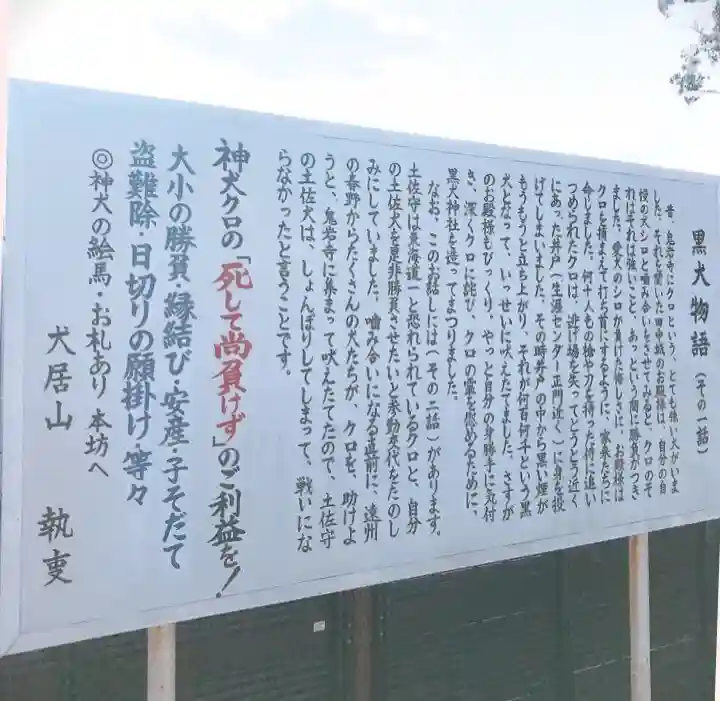 黒犬物語(その一話)
昔、鬼岩寺にクロという、とても強い犬がいま
した。それを聞いた田中城のお殿様は、自分の自
慢の犬シロと噛み合いをさせてみると、クロのそ
れはそれは強いこと、あっという間に勝負がつき
ました。愛犬のシロが負けた悔しさに、お殿様は
クロを捕まえて打ち首にするように、家来たちに
命じました。何十人もの槍や刀を持った侍に追い
つめられたクロは、逃げ場を失ってとうとう近く
にあった井戸(生涯センター正門近く)に身を投
げてしまいました。その時井戸の中から黒い煙が
もうもうと立ち上がり、それが何百何千という黒
犬となって、いっせいに吠えたてました。さすが
のお殿様もびっくり、やっと自分の身勝手に気付
き、深くクロに詫び、クロの霊を慰めるために、
黒犬神社を造ってまつりました。
なお、このお話しには(その二話)があります。
土佐守は東海道一と恐れられているクロと、自分
の土佐犬を是非勝負させたいと参勤交代をたのし
みにしていました。噛み合いになる直前に、遠州
の春野からたくさんの犬たちが、クロを、助けよ
うと、鬼岩寺に集まって吠えたてたので、土佐守
の土佐犬は、しょんぼりしてしまって、戦いにな
らなかったと言うことです。
神犬クロの「死して尚負けず」のご利益を!
大小の勝負・縁結び・安産・子そだて
盗難除・日切りの願掛け・等々
◎神犬の絵馬・お札あり 本坊へ
犬居山 執事